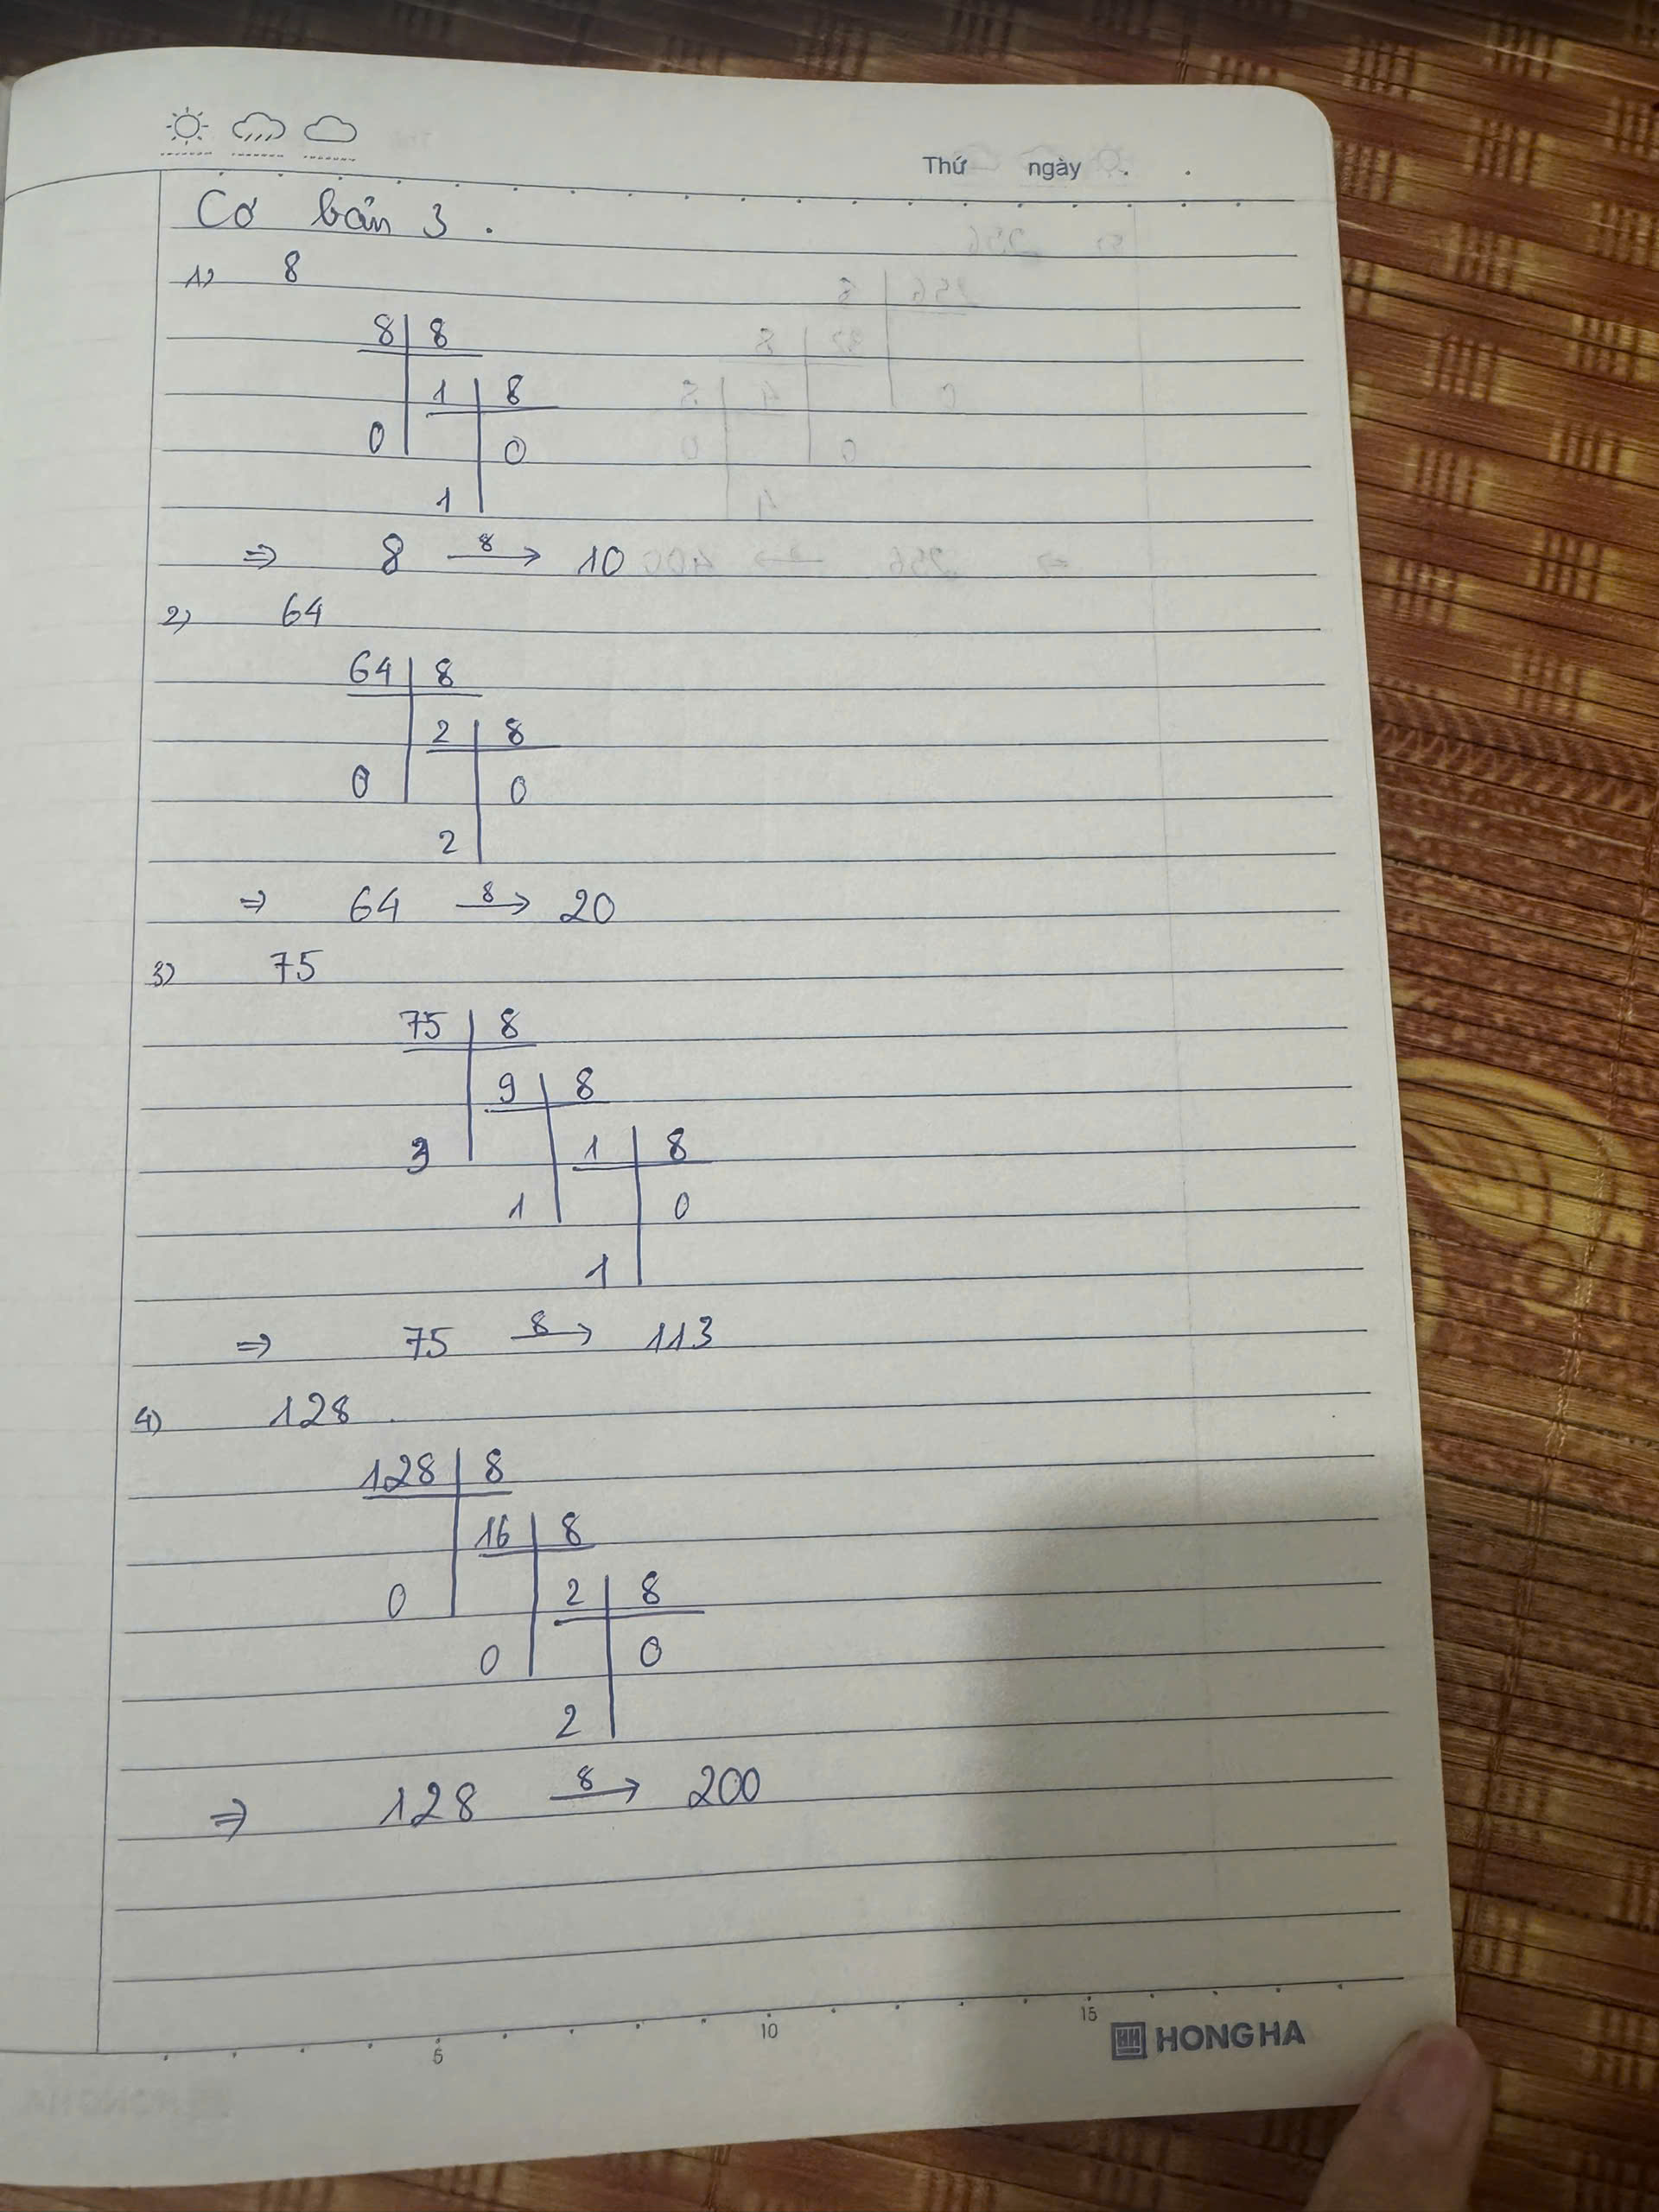 Thứ ngày . .
Cơ bản 3.
1) 8
8 8
1 8
0 0
1
⇒ 8 8→ 10
2) 64
64 8
2 8
0 0
2
⇒ 64 8→ 20
3) 75
75 8
9 8
3 1 8
1 0
1
⇒ 75 8→ 113
4) 128
128 8
16 8
0 2 8
0 0
2
⇒ 128 8→ 200
5 10 15
HH HONG HA